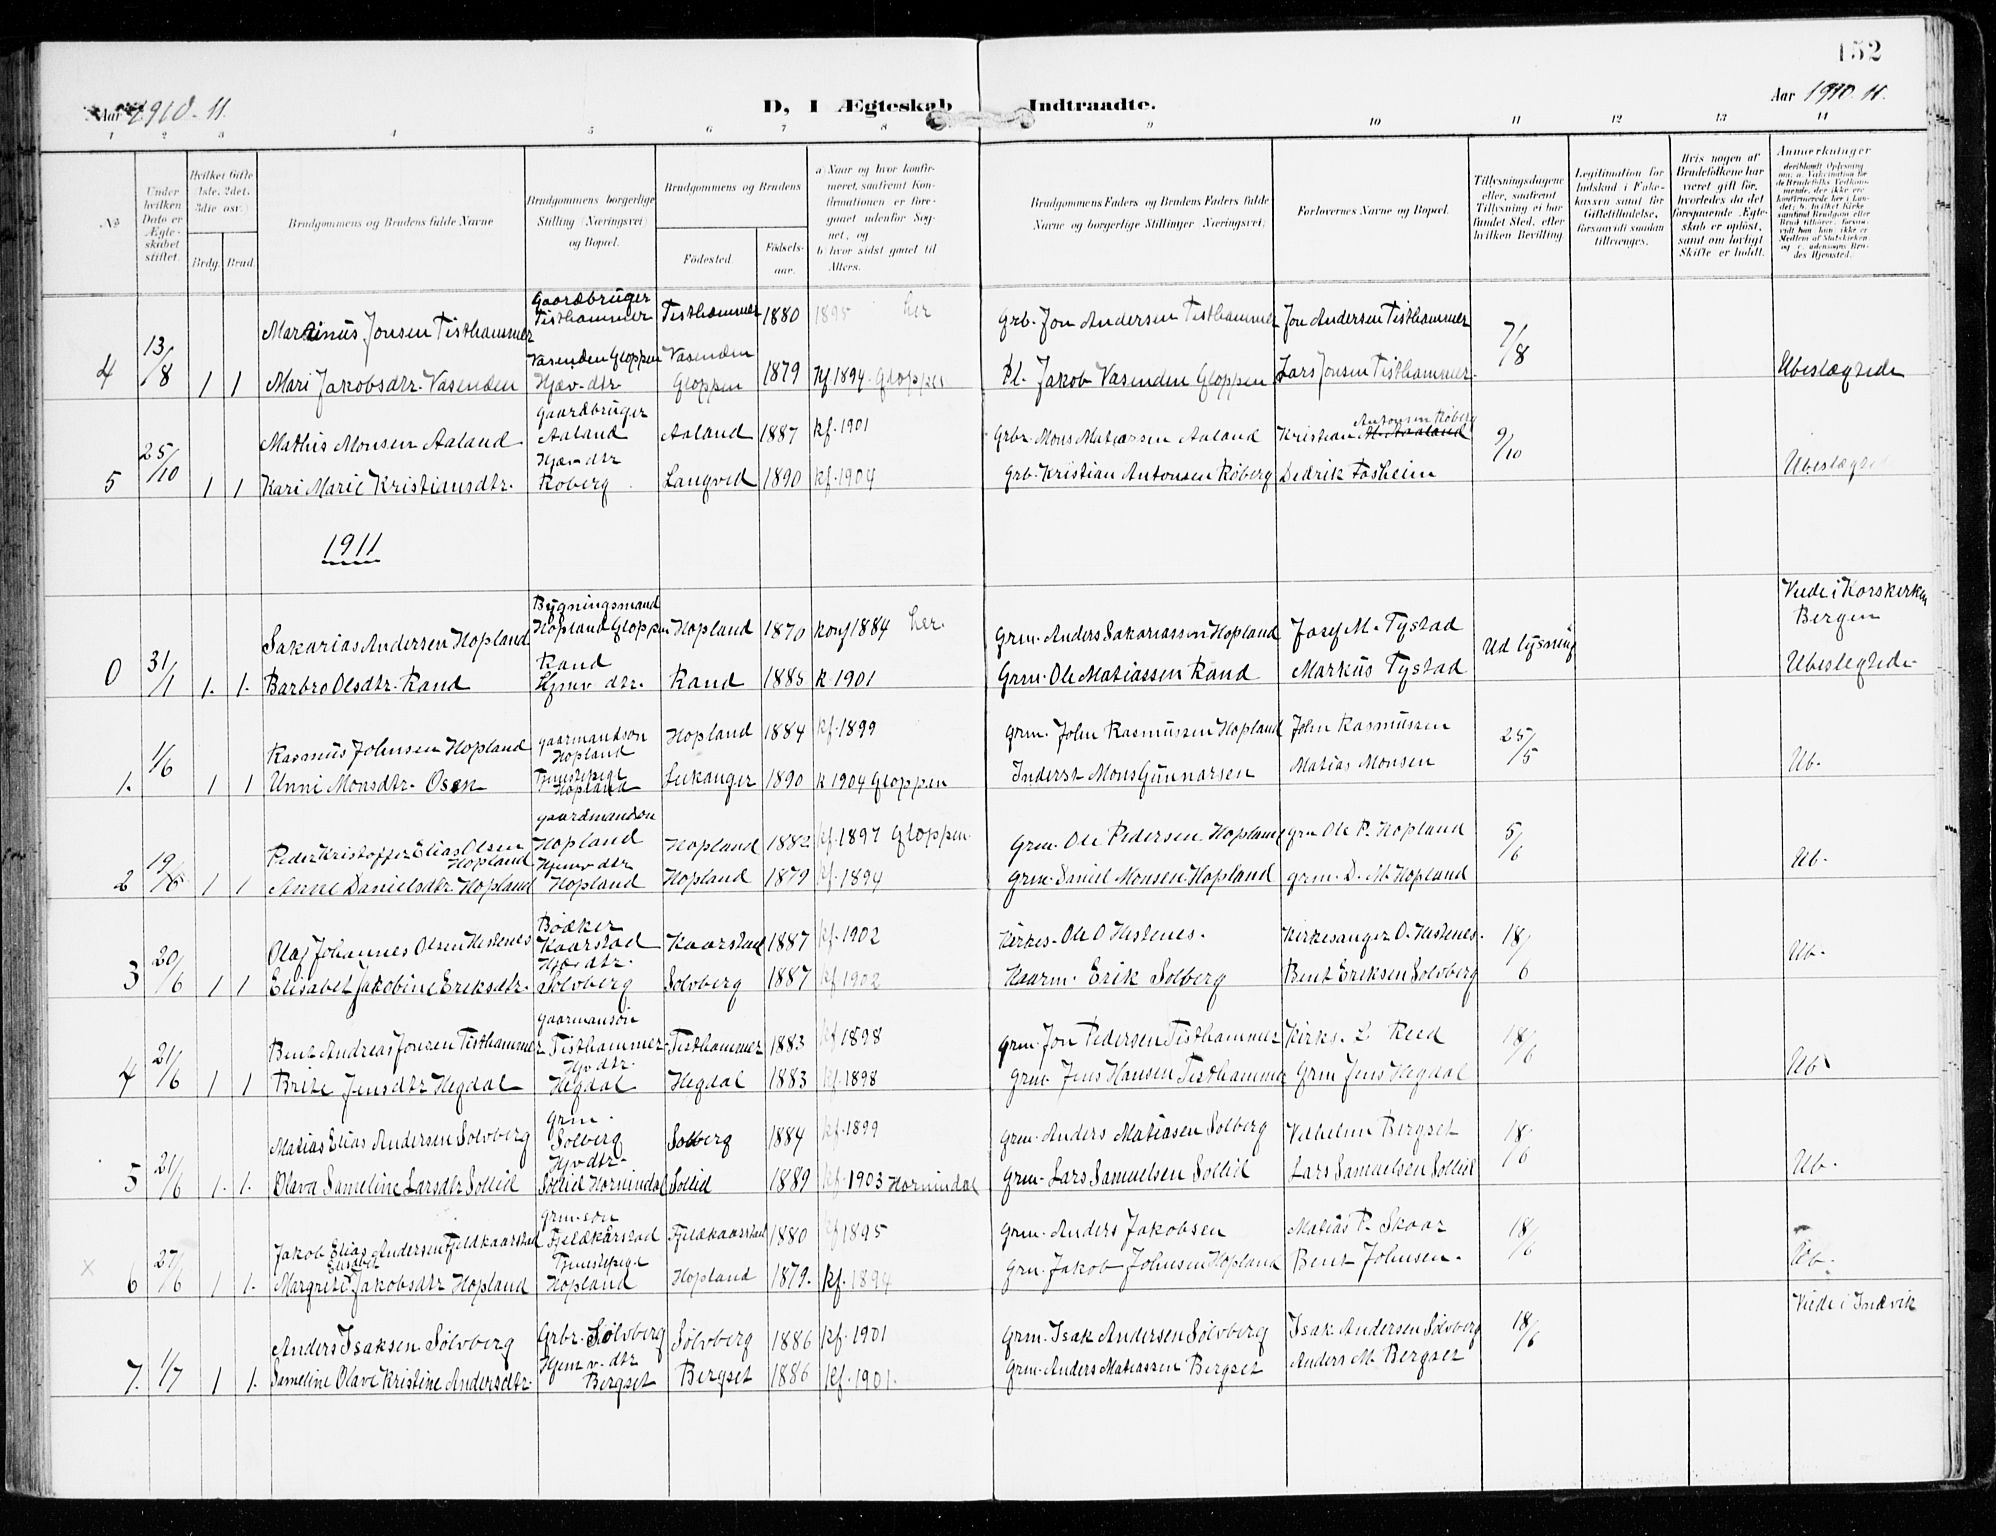 152
Aar 1910-11.
D, I Ægteskab Indtraadte.
Aar 1910-11.
1 2 3 4 5 6 7 8 9 10 11 12 13 14
№
Under hvilken Dato er Ægteskabet stiftet.
Hvilket Gifte
Brdg. Brud.
Brudgommens og Brudens fulde Navne
Brudgommens borgerlige Stilling (Næringsvei) og Bopæl.
Brudgommens og Brudens
Fødested. Fødselsaar.
a) Naar og hvor konfirmeret, saafremt Konfirmationen er foregaaet udenfor Sognet, og
b) hvor sidst gaaet til Alters.
Brudgommens Faders og Brudens Faders fulde Navne og borgerlige Stillinger (Næringsvei)
Forlovernes Navne og Bopæl.
Tillysningsdagene eller, saafremt Tillysning ei har fundet Sted, efter hvilken Bevilling
Legitimation for Indskud i Enkekassen samt for Giftetilladelse, forsaavidt saadan tiltrænges.
Hvis nogen af Brudefolkene har været gift før, hvorledes da det foregaaende Ægteskab er opløst, samt om lovligt Skifte er holdt.
Anmærkninger
4 13/8 1 1
Marinus Jonsen Tisthammer Gaardbruger Tisthammer Tisthammer 1880 1895 her Grb. Jon Andersen Tisthammer Jon Andersen Tisthammer 7/8
Mari Jakobsdtr. Vasenden Vasenden Gloppen Hjæv. dtr Vasenden Gloppen 1879 kf 1894 Gloppen Pl. Jakob Vasenden Gloppen Lars Jonsen Tisthammer. Ubeslægtede
5 25/10 1 1
Mathis Monsen Aaland Gaardbruger Aaland Aaland 1887 kf. 1901 Grbr. Mons Matiassen Aaland Kristian Antonsen Røberg 9/10
Kari Marie Kristiansdtr. Hjæv. dtr Roberg Langved 1890 kf. 1904 Grb. Kristian Antonsen Røberg Didrik Fosheim
1911
0 31/1 1. 1.
Sakarias Andersen Hopland Bygningsmand Hopland Gloppen Hopland 1870 konf 1884 her. Grm. Anders Sakariassen Hopland Josef M. Tystad Ud lysning Viede i Korskirken Bergen
Barbro Olsdtr. Rand Rand Hjmv dtr. Rand 1885 k 1901 Grm. Ole Matiassen Rand Markus Tystad Ubeslegtede
1. 1/6 1 1
Rasmus Johnsen Hopland gaarmandson Hopland Hopland 1884 kf. 1899 Grm. John Rasmussen Hopland John Rasmussen 25/5
Unni Monsdtr. Osen Tjenestepige Hopland Leikanger 1890 k 1904 Gloppen Inderst Mons Gunnarsen Matias Monsen Ub.
2 19/6 1 1
Peder Kristoffer Elias Olsen Hopland gaardmandson Hopland Hopland 1882 kf. 1897 Gloppen. Grm. Ole Pedersen Hopland grm Ole P. Hopland 5/6
Anne Danielsdtr. Hopland Hjemv dtr Hopland Hopland 1879 kf. 1894 Grm. Daniel Monsen Hopland grm. D. M. Hopland Ub.
3 20/6 1 1
Olaf Johannes Olsen Hestenes Bødker Kaarstad Kaarstad 1887 kf. 1902 Kirkes. Ole O Hestenes. Kirkesanger O. Hestenes. 18/6
Elisabet Jakobine Eriksdtr. Hjævdtr. Solvberg Solvberg 1887 kf 1902 Kaarm. Erik Solberg Bent Eriksen Solvberg Ub.
4 21/6 1 1
Bent Andreas Jonsen Tisthammer gaarmanson Tisthammer Tisthammer 1883 kf 1898 Grm. Jon Pedersen Tisthammer Kirks. L Reed 18/6
Brite Jensdtr Hegdal Hjvdtr. Hegdal Hegdal 1883 kf. 1898 Grm. Jens Hansen Tisthammer Grm Jens Hegdal Ub.
5 21/6 1. 1.
Matias Elias Andersen Solvberg Grm Solberg Solberg 1884 kf. 1899 Grm. Anders Matiasen Solberg Vilhelm Bergset 18/6
Olava Sameline Larsdtr Sollid Hjvdtr. Sollid Hornindal Sollid 1889 kf. 1903 Hornindal Grm. Lars Samuelsen Sollid Lars Samuelsen Sollid Ub.
x 6 27/6 1 1.
Jakob Elias Andersen Fjeldkaarstad Grm. son Fjeldkårstad Fjeldkaarstad 1880 kf 1895 Grm. Anders Jakobsen Matias P. Skaar 18/6
Margrete Elisabet Jakobsdtr Hopland Tjenestepige Hopland Hopland 1879. kf. 1894 Grm. Jakob Johnsen Hopland Bent Johnsen. Ub.
7. 1/7 1 1.
Anders Isaksen Solvberg Grbr. Sølvberg Sølvberg 1886 kf. 1901 Grm. Isak Andersen Sølvberg Isak Andersen Sølvberg 18/6 Viede i Indvik
Sameline Olave Kristine Andersdtr. Hjemv. dtr Bergset Bergset 1886 kf. 1901. Grm. Anders Matiassen Bergset Anders M. Bergset